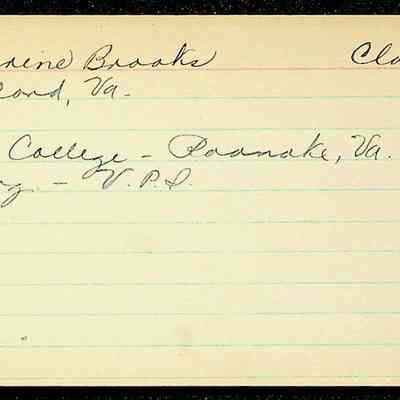 rine Brooks Cla
ford, Va.
College - Roanoke, Va.
g. - V.P.I.